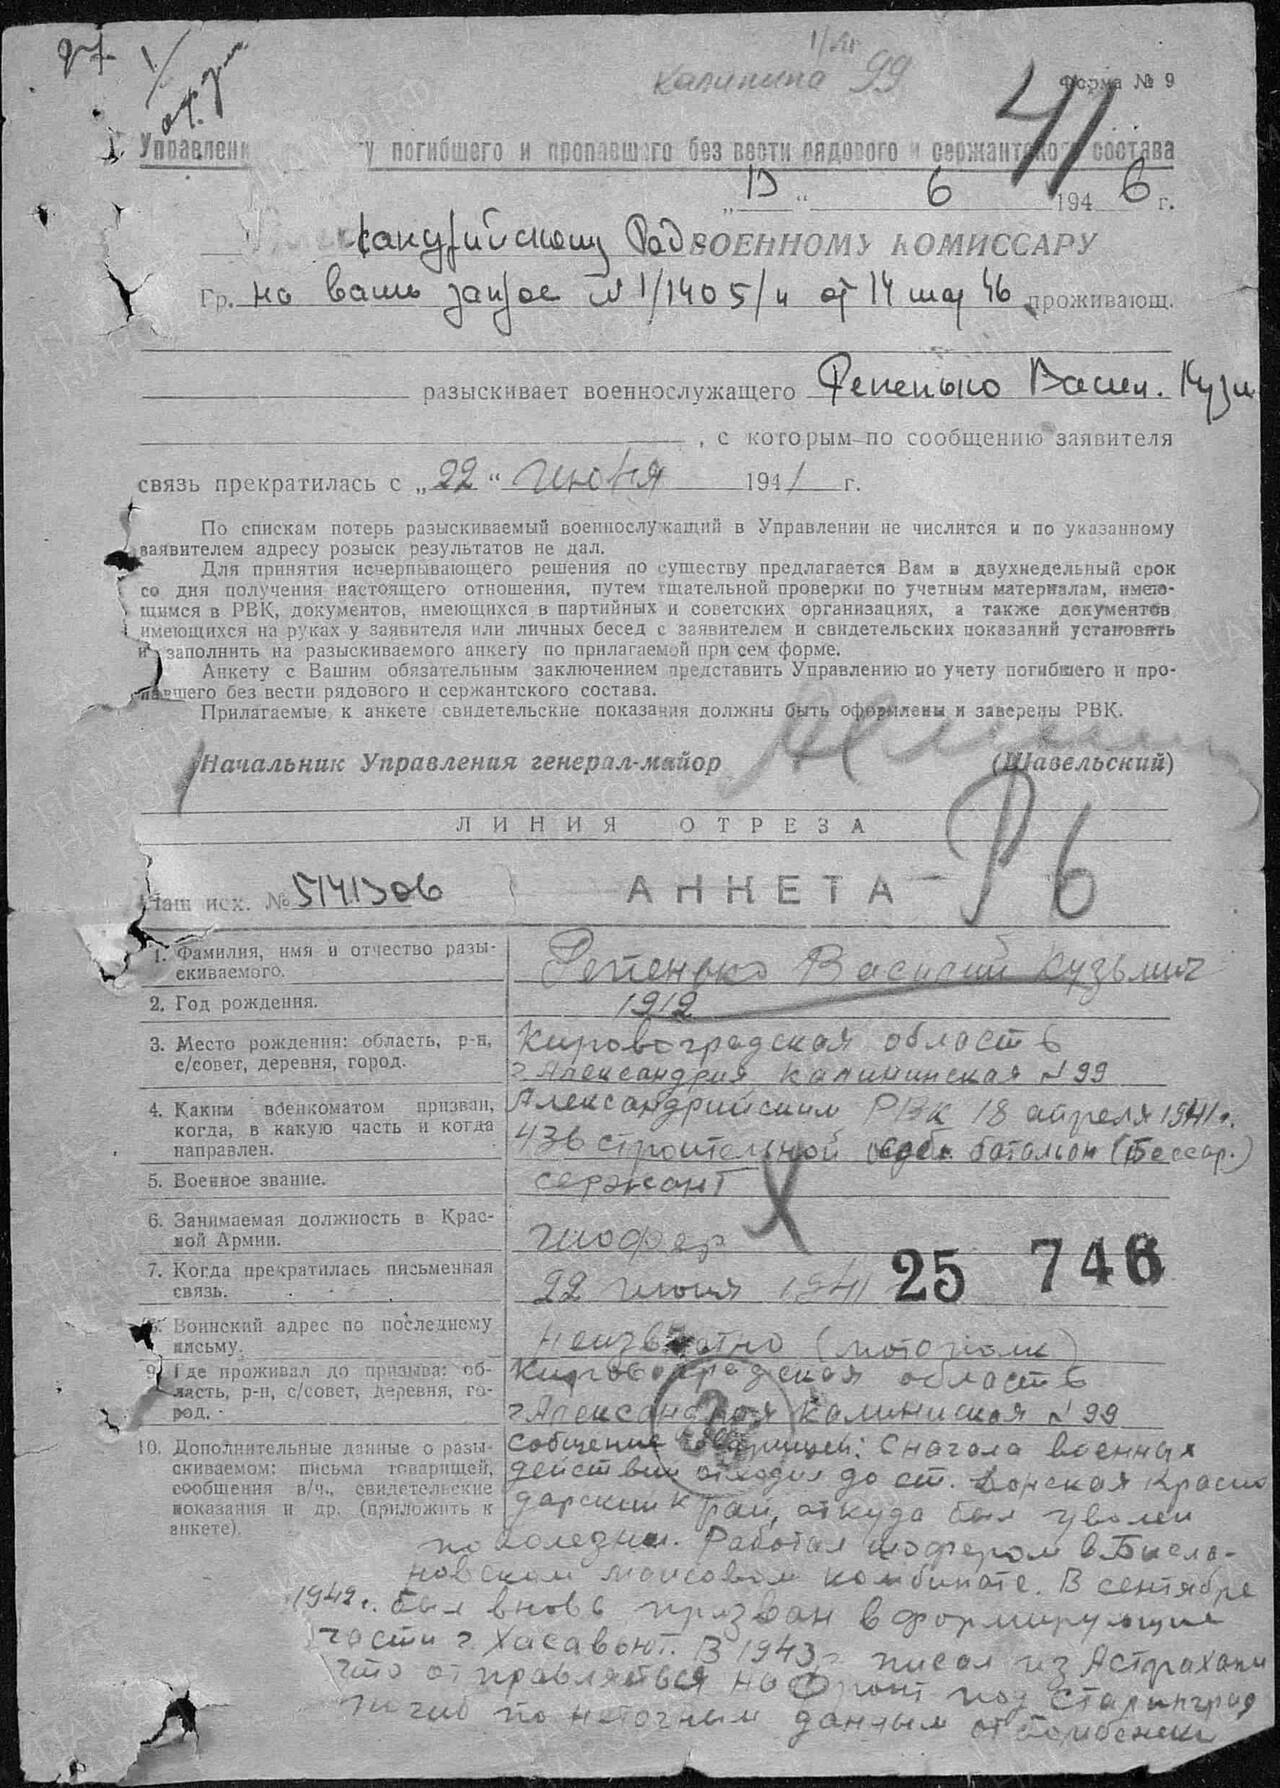 27
1/
Калинина 99
Форма № 9
41
Управлени у погибшего и пропавшего без вести рядового и сержантского состава
„13“ 6 1946 г.
сандрийскому Рай ВОЕННОМУ КОМИССАРУ
Гр. на ваш запрос N 1/1405/ч от 14 мар 46 проживающ.
разыскивает военнослужащего Репенько Васил. Кузм
, с которым по сообщению заявителя
связь прекратилась с „22“ июня 1941 г.
По спискам потерь разыскиваемый военнослужащий в Управлении не числится и по указанному
заявителем адресу розыск результатов не дал.
Для принятия исчерпывающего решения по существу предлагается Вам в двухнедельный срок
со дня получения настоящего отношения, путем тщательной проверки по учетным материалам, имею-
щимся в РВК, документов, имеющихся в партийных и советских организациях, а также документов
имеющихся на руках у заявителя или личных бесед с заявителем и свидетельских показаний установить
и заполнить на разыскиваемого анкету по прилагаемой при сем форме.
Анкету с Вашим обязательным заключением представить Управлению по учету погибшего и про-
павшего без вести рядового и сержантского состава.
Прилагаемые к анкете свидетельские показания должны быть оформлены и заверены РВК.
Начальник Управления генерал-майор (Шавельский)
ЛИНИЯ ОТРЕЗА
Наш исх. № 5141306 АНКЕТА
1. Фамилия, имя и отчество разы-
скиваемого.
Репенько Василий Кузьмич
2. Год рождения.
1912
3. Место рождения: область, р-н,
с/совет, деревня, город.
Кировоградская область
г Александрия Калининская N 99
4. Каким военкоматом призван,
когда, в какую часть и когда
направлен.
Александрийским РВК 18 апреля 1941 г.
436 строительной батальон (Бессар.)
5. Военное звание.
сержант
6. Занимаемая должность в Крас-
ной Армии.
шофер
7. Когда прекратилась письменная
связь.
22 июня 1941
25 746
8. Воинский адрес по последнему
письму.
Неизвестно (мотополк)
9. Где проживал до призыва: об-
ласть, р-н, с/совет, деревня, го-
род.
Кировоградская область
г Александрия Калининская N 99
10. Дополнительные данные о разы-
скиваемом: письма товарищей,
сообщения в/ч., свидетельские
показания и др. (приложить к
анкете).
Сообщение товарищей: Сначала военных
действий отходил до ст. Донская Красно
дарский край, откуда был уволен
по болезни. Работал шофером в Бесла-
новском маисовом комбинате. В сентябре
1942 г. был вновь призван в формирующие
части г. Хасавюрт. В 1943 г писал из Астрахани
что отправляется на фронт под Сталинград
погиб по неточным данным от бомбежки